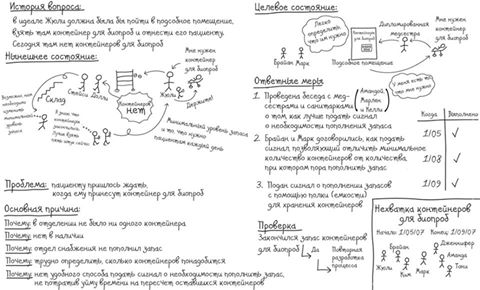 История вопроса:
в идеале Жюли должна была бы пойти в подсобное помещение,
взять там контейнер для биопроб и отнести его пациенту.
Сегодня там нет контейнеров для биопроб
Нынешнее состояние:
Мне нужен
контейнер
для биопроб
Стейси
Долли
Склад
Контейнеров
нет
Жюли
Держите!
Возможно, нам
необходимо
изменить
минимальный
уровень
запаса
Минимальный уровень запаса
и то что нужно
пациентам каждый день
Проблема: пациенту пришлось ждать,
когда ему принесут контейнер для биопроб
Основная причина:
Почему: в отделении не было ни одного контейнера
Почему: нет в наличии
Почему: отдел снабжения не пополнил запас
Почему: трудно определить, сколько контейнеров понадобится
Почему: нет удобного способа подать сигнал о необходимости пополнить запас,
не потратив уйму времени на пересчет оставшихся контейнеров
Целевое состояние:
Легко
определить,
что им нужно
Контейнеры
для
биопроб
Дипломированная
медсестра
Мне нужен
контейнер
для биопроб
Брайан
Марк
Подсобное помещение
У меня есть то
что мне нужно
Ответные меры
1. Проведена беседа с мед-
сестрами и санитарками
Аманда
Марлен
и Келли
о том как лучше подать сигнал
о необходимости пополнения запаса
2. Брайан и Марк договорились, как подать
сигнал позволяющий отличить минимальное
количество контейнеров от количества,
при котором пора пополнить запас
3. Подан сигнал о пополнении запасов
с помощью полки (емкости)
для хранения контейнеров
Когда
Выполнено
1/05
1/08
1/09
Проверка
Закончился запас контейнеров
для биопроб
Да
Повторная
разработка
процесса
Нехватка контейнеров
для биопроб
Начало 1/05/07 Конец 1/09/07
Брайан
Дженнифер
Аманда
Жюли
Ким
Марк
Тони